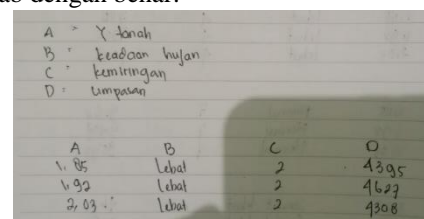 ab dengan benar.
A = γ tanah
B = keadaan hujan
C = kemiringan
D = umpasan
A B C D
1,85 Lebat 2 4395
1,92 Lebat 2 4627
2,03 Lebat 2 4308